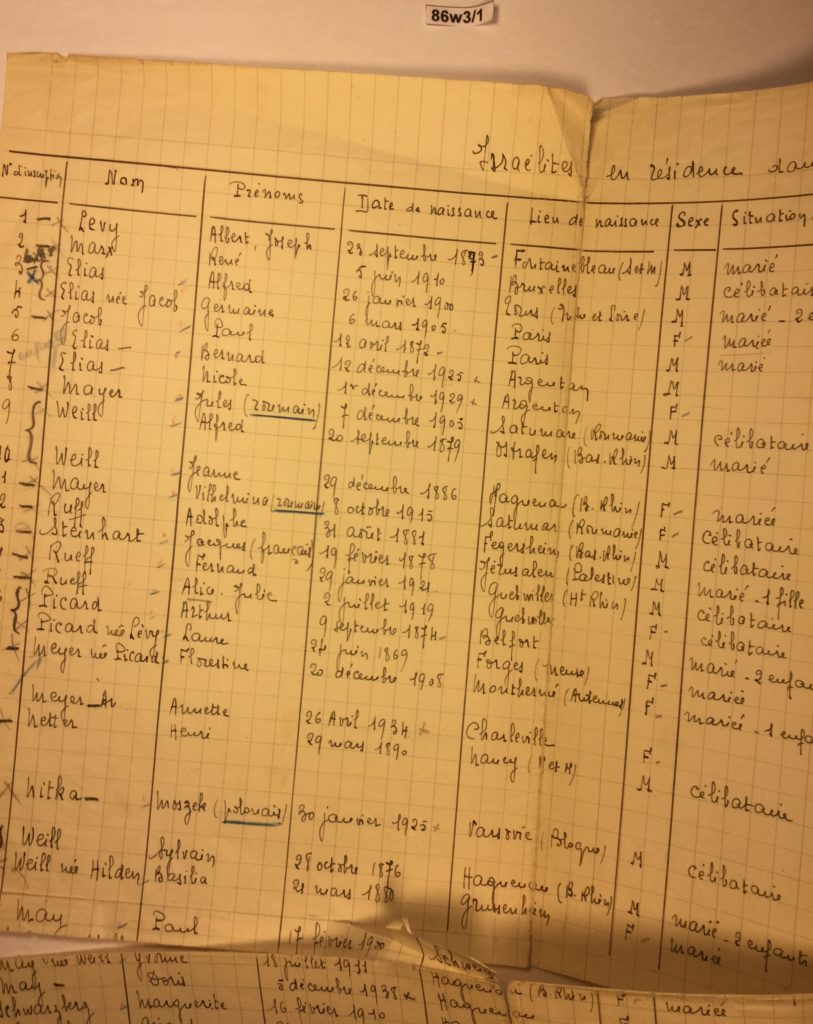 86w3/1
Israélites en résidence dan
N° d'inscription Nom Prénoms Date de naissance Lieu de naissance Sexe Situation
1 Levy Albert, Joseph 23 septembre 1873 Fontainebleau (S et M) M marié
2 Marx René 5 juin 1910 Bruxelles M célibataire
3 Elias Alfred 26 janvier 1900 Tours (Indre et Loire) M marié - 2 e
4 Elias née Jacob Germaine 6 mars 1905 Paris F mariée
5 Jacob Paul 12 avril 1872 Paris M marié
6 Elias Bernard 12 décembre 1925 Argentan M
7 Elias Nicole 1er décembre 1929 Argentan F
8 Mayer Jules (roumain) 7 décembre 1905 Satumare (Roumanie) M célibataire
9 Weill Alfred 20 septembre 1879 (Bas-Rhin) M marié
10 Weill Jeanne 29 décembre 1886 Haguenau (B. Rhin) F mariée
1 Mayer Vilhelmina 8 octobre 1915 Satumar (Roumanie) F célibataire
2 Ruff Adolphe 31 août 1881 Fegersheim (Bas-Rhin) M célibataire
3 Steinhart Jacques (français) 19 février 1878 Jérusalem (Palestine) M marié - 1 fille
Rueff Fernand 29 janvier 1921 Guebwiller (Ht Rhin) M célibataire
Rueff Alice Julie 2 juillet 1919 Guebwiller F célibataire
Picard Arthur 9 septembre 1874 Belfort M marié - 2 enfants
Picard née Lévy Laure juin 1869 Forges (Meuse) F mariée
Meyer née Picard Florestine 20 décembre 1908 Monthermé (Ardennes) F mariée - 1 enfa
Meyer Annette 26 Avril 1934 Charleville F
Netter Henri 29 mars 1890 Nancy M célibataire
Nitka Moszek (polonais) 30 janvier 1925 Varsovie (Pologne) M célibataire
Weill Sylvain 28 octobre 1876 Haguenau (B. Rhin) M marié - 2 enfants
Weill née Hilden Basilia 21 mars 1880 Grussenheim F mariée
May Paul 17 février 1900
May née Weill Yvonne 18 juillet 1911 Haguenau (B. Rhin) F mariée
May Doris 5 décembre 1938 Haguenau
Schwarzberg Marguerite 16 février 1910